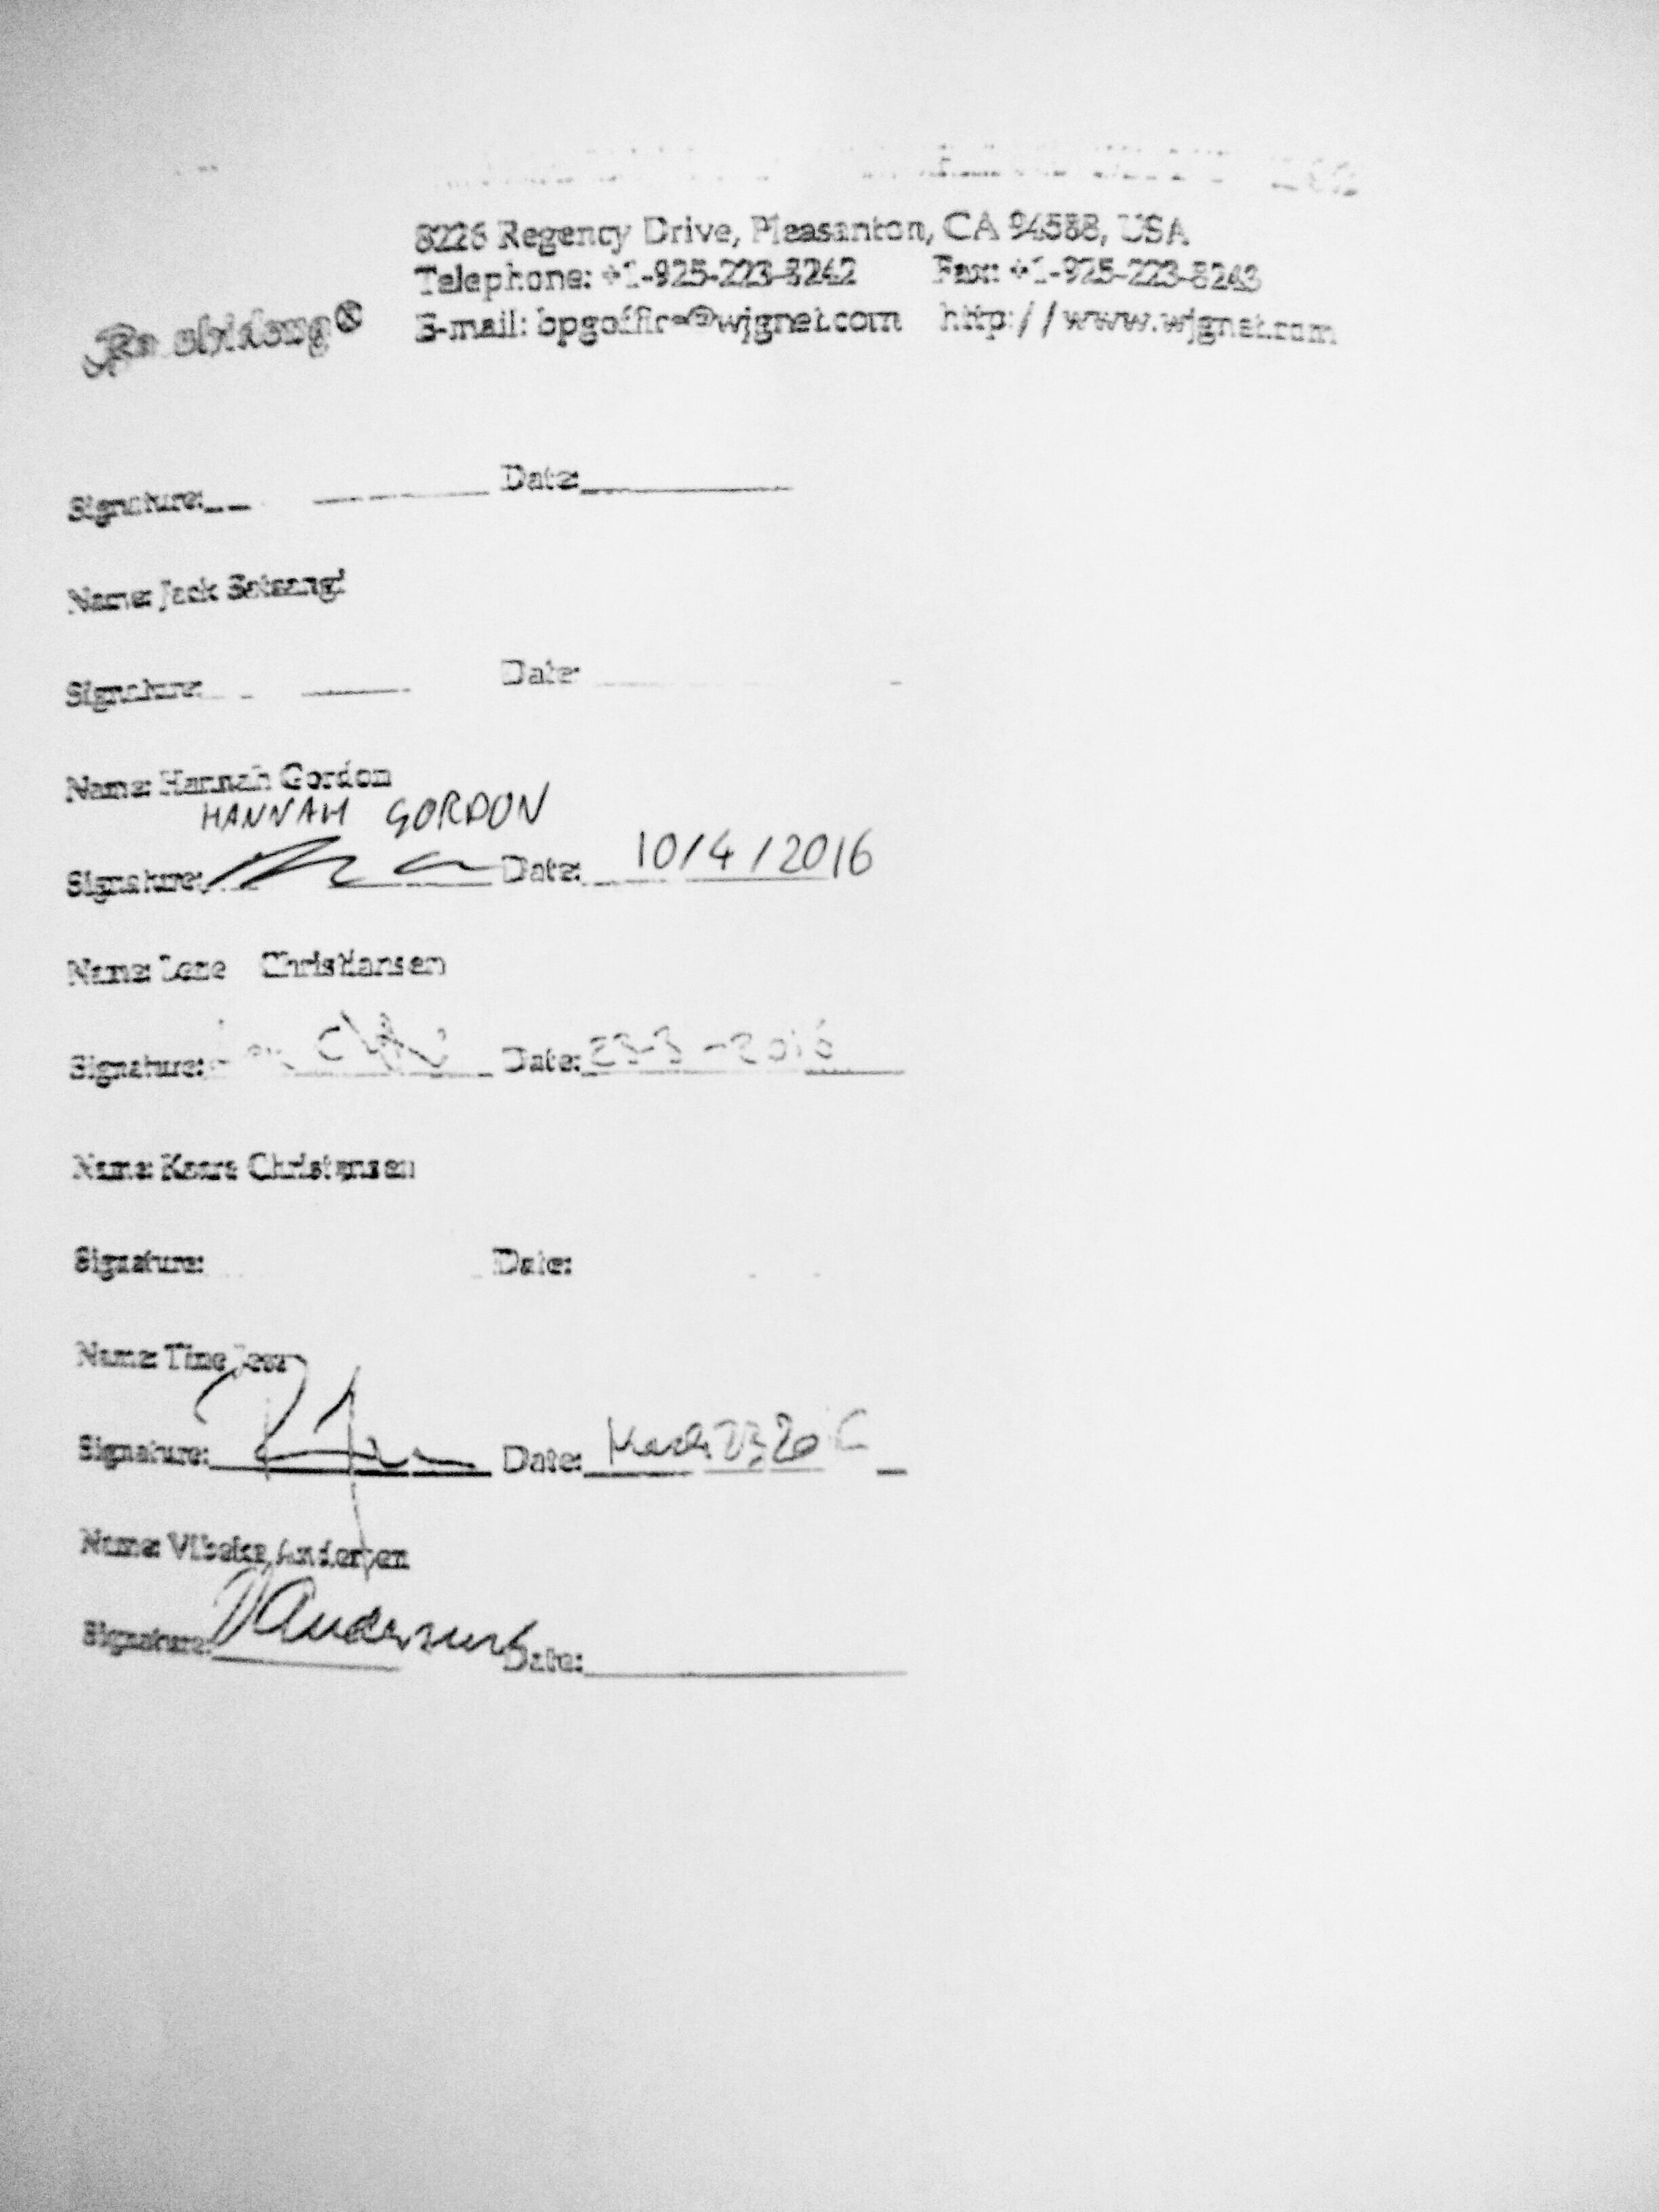 Baishideng®
8226 Regency Drive, Pleasanton, CA 94588, USA
Telephone: +1-925-223-8242 Fax: +1-925-223-8243
E-mail: bpgoffice@wjgnet.com http://www.wjgnet.com
Signature: Date:
Name: Jack Satsangi
Signature: Date:
Name: Hannah Gordon
HANNAH GORDON
Signature: Date: 10/4/2016
Name: Lene Christiansen
Signature: Date: 23-3-2016
Name: Kaare Christensen
Signature: Date:
Name: Tine Jess
Signature: Date: March 23 2016
Name: Vibeke Andersen
Signature: VAndersen Date: